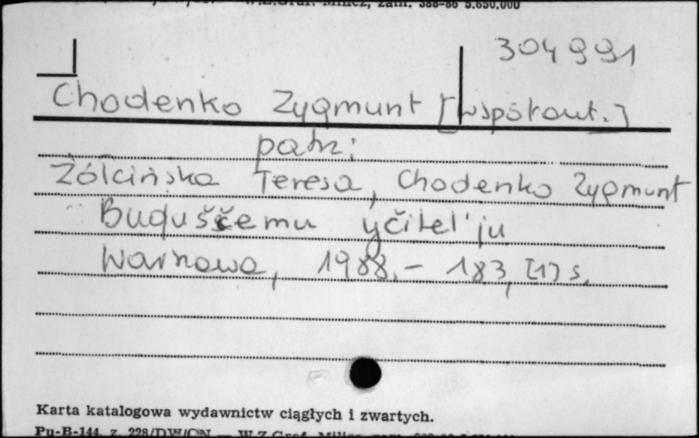 304991
Chodenko Zygmunt [współaut.]
patrz:
Żółcińska Teresa, Chodenko Zygmunt
Buduščemu učitel'ju
Warszawa, 1988.- 183, [1] s.
Karta katalogowa wydawnictw ciągłych i zwartych.
Pu-B-144, z. 228/DW/CN — W.Z.Graf.